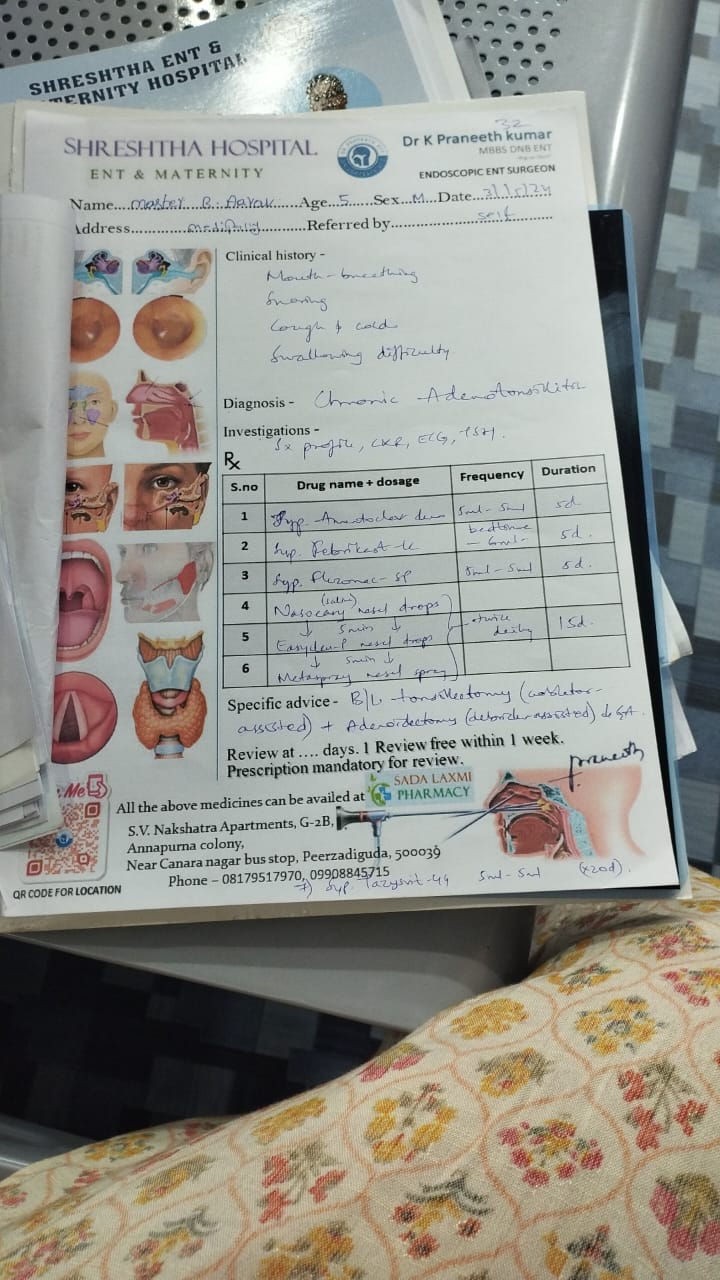 SHRESHTHA ENT &
TERNITY HOSPITAL
32
SHRESHTHA HOSPITAL
ENT & MATERNITY
Dr K Praneeth kumar
MBBS DNB ENT
ENDOSCOPIC ENT SURGEON
Name....master B. Aarav......Age..5.....Sex..M..Date..
Address.......................Referred by....self....
Clinical history -
Mouth-breathing
Snoring
Cough & cold
Swallowing difficulty.
Diagnosis - Chronic Adenotonsillitis
Investigations -
Sx profile, CXR, ECG, TSH.
Rx
S.no Drug name + dosage Frequency Duration
1 Syp. 5ml - 5ml 5d
2 Syp. bedtime - 6ml - 5d.
3 Syp. 5ml - 5ml 5d.
4 (saline) Nasal drops
↓ 5min ↓
5 nasal drops twice daily 15d.
↓ 5min ↓
6 Metaspray nasal spray
Specific advice - B/L tonsillectomy (coblator-
assisted) + Adenoidectomy (debrider assisted) GA.
Review at .... days. 1 Review free within 1 week.
Prescription mandatory for review.
Praneeth
Me
All the above medicines can be availed at
SADA LAXMI
PHARMACY
S.V. Nakshatra Apartments, G-2B,
Annapurna colony,
Near Canara nagar bus stop, Peerzadiguda, 500039
Phone – 08179517970, 09908845715
QR CODE FOR LOCATION
7) Syp. 5ml - 5ml (x20d).